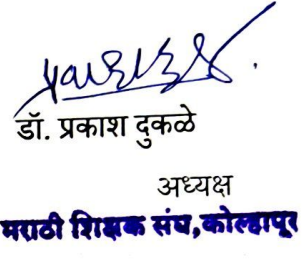 डॉ. प्रकाश दुकळे
अध्यक्ष
मराठी शिक्षक संघ, कोल्हापूर